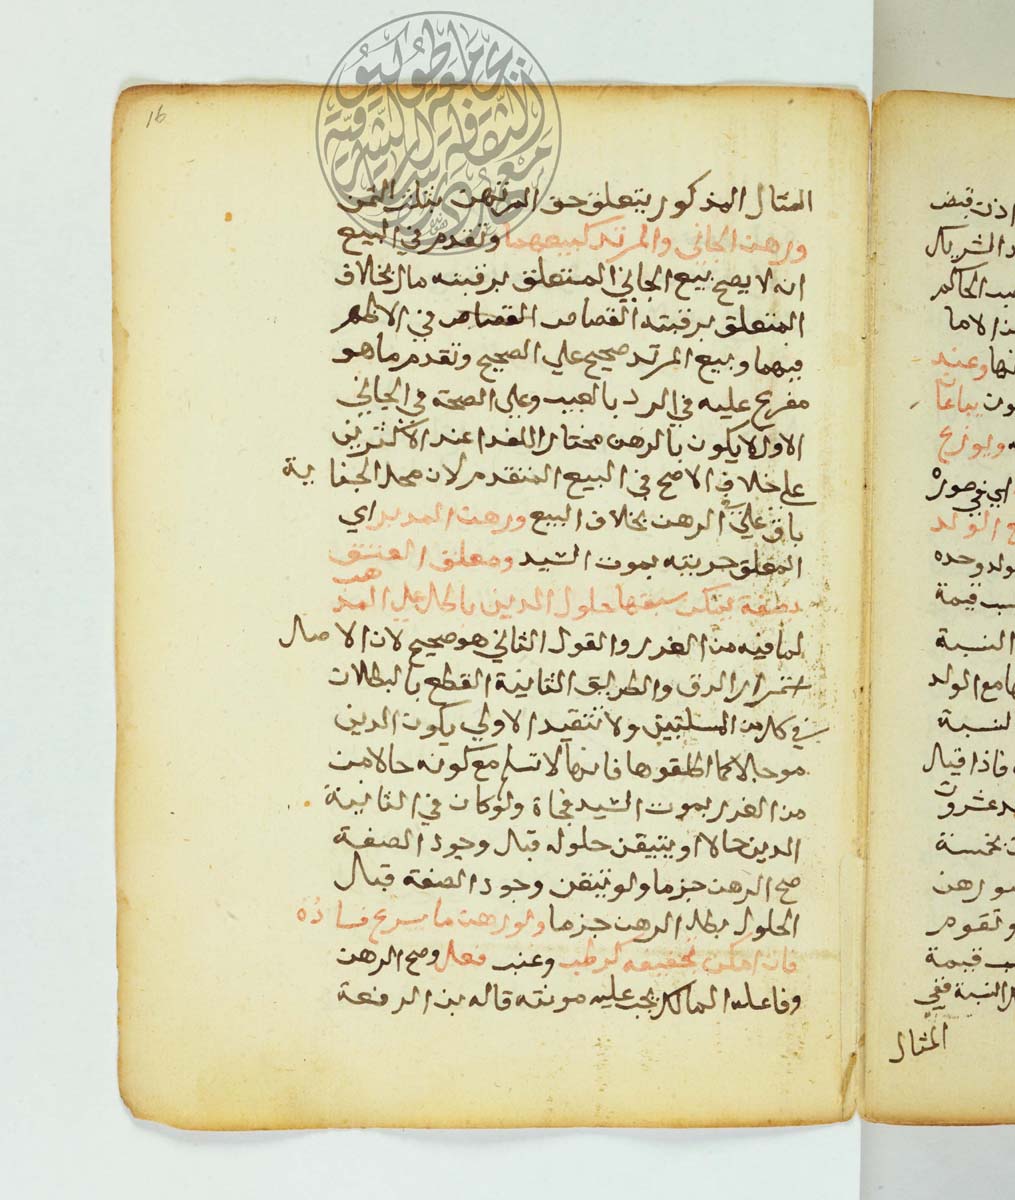 16
المثال المذكور يتعلق حق المرتهن بثلث الثمن
ورهن الجاني والمرتد كبيعهما وتقدم في البيع
انه لا يصح بيع الجاني المتعلق برقبته مال بخلاف
المتعلق برقبته القصاص القصاص في الاظهر
فيهما وبيع المرتد صحيح علي الصحيح وتقدم ما هو
مفرع عليه في الرد بالعيب وعلي الصحة في الجاني
الاول لا يكون بالرهن مختارا للفدا عند الاكثرين
علي خلاف الاصح في البيع المتقدم لان محل الجناية
باق علي في الرهن بخلاف البيع ورهن المدبر اي
المعلق حريته بموت السيد ومعلق العتق
بصفة يمكن سبقها حلول الدين باطل علي المذهب
لما فيه من الغرر والقول الثاني هو صحيح لان الاصل
استمرار الرق والطريق الثانية القطع بالبطلان
في كل من المسئلتين ولا تتقيد الاولي بكون الدين
موجلا كما اطلقوها فانها لا تسلم مع كونه حالا من
من الغرر بموت السيد فجاة ولو كان في الثانية
الدين حالا او يتيقن حلوله قبل وجود الصفة
صح الرهن جزما ولو تيقن وجود الصفة قبل
الحلول بطل الرهن جزما ولو رهن ما يسرع فساده
فان امكن تجفيفه كرطب وعنب فعل وصح الرهن
وفاعله المالك يجب عليه مونته قاله بن الرفعة
اذن قبض
الشريك
الحاكم
وعند
يباعا
ويوزع
اي في صورة
الولد
ولد وحده
قيمة
النسبة
مع الولد
النسبة
فاذا قيل
عشرون
بخمسة
رهن
وتقوم
قيمة
النسبة ففي
المثال